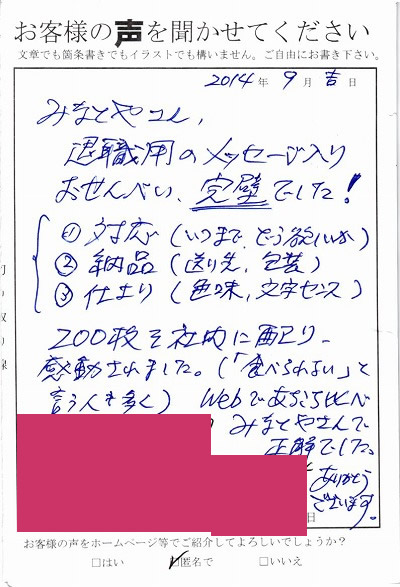 お客様の声を聞かせてください
文章でも箇条書きでもイラストでも構いません。ご自由にお書き下さい。
2014年 9月 吉日
みなとやさん、
退職用のメッセージ入り
おせんべい、完璧でした!
① 対応(いつまで、どう欲しいか)
② 納品(送り先、包装)
③ 仕上り(色味、文字センス)
200枚を社内に配り、
感動されました。(「食べられない」と
言う人も多く) Webであちこち比べ
みなとやさんで
正解でした。
ありがとう
ございます。
日
お客様の声をホームページ等でご紹介してよろしいでしょうか?
□はい ☑匿名で □いいえ